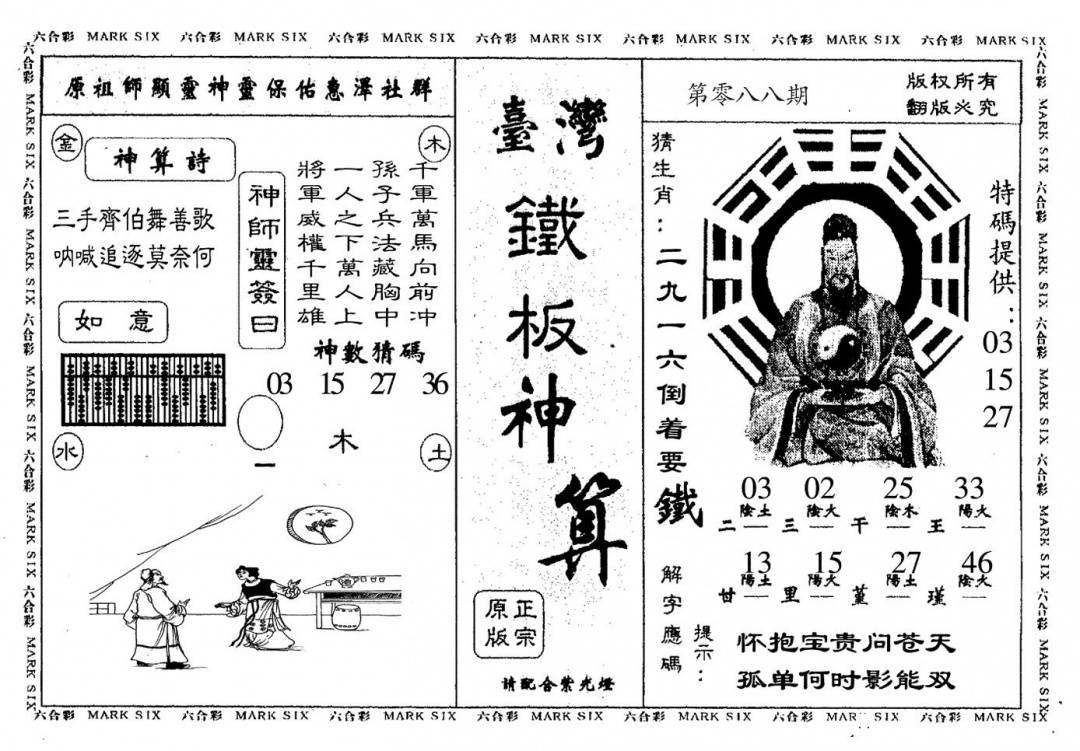 六合彩 MARK SIX 六合彩 MARK SIX 六合彩 MARK SIX 六合彩 MARK SIX 六合彩 MARK SIX 六合彩 MARK SIX 六合彩 MARK SIX
原祖師顯靈神靈保佑惠澤社群
金
木
神算詩
三手齊伯舞善歌
呐喊追逐莫奈何
如意
神師靈簽曰
千軍萬馬向前冲
孫子兵法藏胸中
一人之下萬人上
將軍威權千里雄
神數猜碼
03 15 27 36
木
水
土
臺灣
鐵板神算
正宗
原版
請配合紫光燈
第零八八期
版权所有
翻版必究
猜生肖:二九一六倒着要
鐵
特碼提供:
03
15
27
03 02 25 33
陰土 陰火 陰木 陽火
二 三 干 王
13 15 27 46
陽土 陽火 陽土 陰火
廿 里 堇 瑾
解字應碼
提示:
怀抱宝贵问苍天
孤单何时影能双
六合彩 MARK SIX 六合彩 MARK SIX 六合彩 MARK SIX 六合彩 MARK SIX 六合彩 MARK SIX 六合彩 MARK SIX 六合彩 MARK SIX
六合彩 MARK SIX 六合彩 MARK SIX 六合彩 MARK SIX 六合彩 MARK SIX 六合彩 MARK SIX
六合彩 MARK SIX 六合彩 MARK SIX 六合彩 MARK SIX 六合彩 MARK SIX 六合彩 MARK SIX